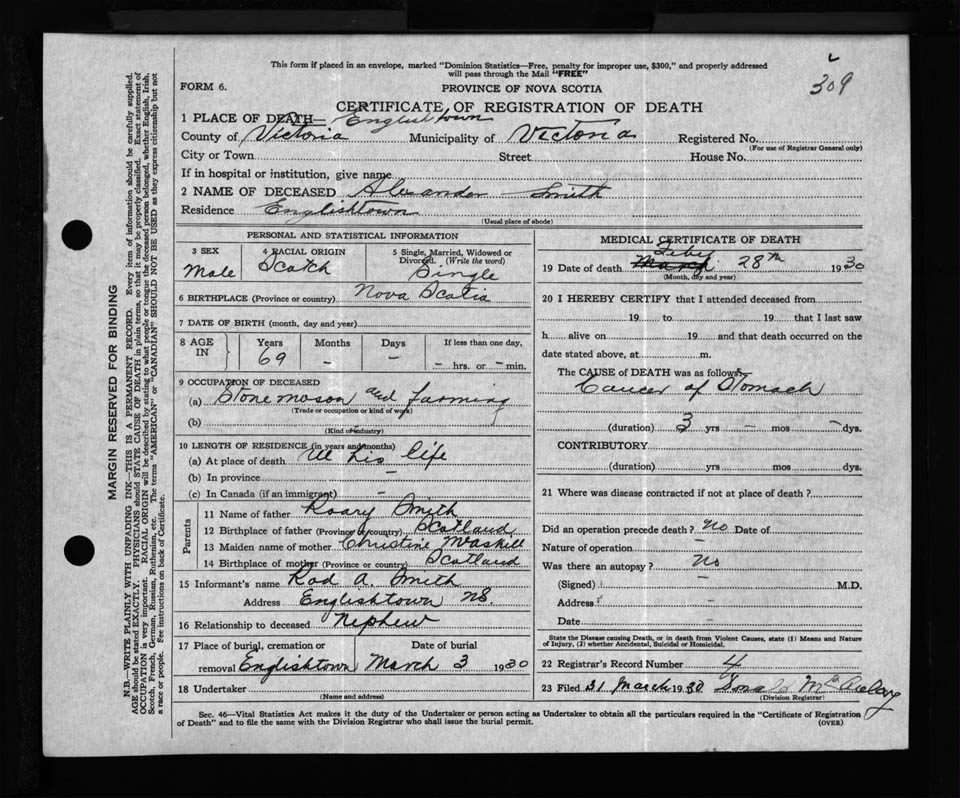 This form if placed in an envelope, marked "Dominion Statistics—Free, penalty for improper use, $300," and properly addressed
will pass through the Mail "FREE"
309
FORM 6.
PROVINCE OF NOVA SCOTIA
CERTIFICATE OF REGISTRATION OF DEATH
1 PLACE OF DEATH— Englishtown
County of Victoria Municipality of Victoria Registered No.
(For use of Registrar General only)
City or Town Street House No.
If in hospital or institution, give name
2 NAME OF DECEASED Alexander Smith
Residence Englishtown
(Usual place of abode)
PERSONAL AND STATISTICAL INFORMATION
3 SEX 4 RACIAL ORIGIN 5 Single, Married, Widowed or
Divorced. (Write the word)
Male Scotch Single
6 BIRTHPLACE (Province or country) Nova Scotia
7 DATE OF BIRTH (month, day and year)
8 AGE IN Years Months Days If less than one day,
69 - - - hrs. or - min.
9 OCCUPATION OF DECEASED
(a) Stone mason and farming
(Trade or occupation or kind of work)
(b)
(Kind of industry)
10 LENGTH OF RESIDENCE (in years and months)
(a) At place of death All his life
(b) In province -
(c) In Canada (if an immigrant) -
Parents
11 Name of father Roary Smith
12 Birthplace of father (Province or country) Scotland
13 Maiden name of mother Christine McAskill
14 Birthplace of mother (Province or country) Scotland
15 Informant's name Rod A. Smith
Address Englishtown NS.
16 Relationship to deceased Nephew
17 Place of burial, cremation or Date of burial
removal Englishtown March 3 1930
18 Undertaker
(Name and address)
MEDICAL CERTIFICATE OF DEATH
Feby
19 Date of death March 28th 1930
(Month, day and year)
20 I HEREBY CERTIFY that I attended deceased from
19 to 19 that I last saw
h alive on 19 and that death occurred on the
date stated above, at m.
The CAUSE of DEATH was as follows:
Cancer of Stomach
(duration) 3 yrs - mos - dys.
CONTRIBUTORY
(duration) yrs mos dys.
21 Where was disease contracted if not at place of death?
Did an operation precede death? no Date of
Nature of operation -
Was there an autopsy? no
(Signed) - M.D.
Address -
Date -
State the Disease causing Death, or in death from Violent Causes, state (1) Means and Nature
of Injury, (2) whether Accidental, Suicidal or Homicidal.
22 Registrar's Record Number 4
23 Filed 31 March 1930 Donald
(Division Registrar)
Sec. 46—Vital Statistics Act makes it the duty of the Undertaker or person acting as Undertaker to obtain all the particulars required in the "Certificate of Registration
of Death" and to file the same with the Division Registrar who shall issue the burial permit. (OVER)
MARGIN RESERVED FOR BINDING
N.B.—WRITE PLAINLY WITH UNFADING INK—THIS IS A PERMANENT RECORD. Every item of information should be carefully supplied.
AGE should be stated EXACTLY. PHYSICIANS should STATE CAUSE OF DEATH in plain terms, so that it may be properly classified. Exact statement of
OCCUPATION is very important. RACIAL ORIGIN will be described by stating to what people or tongue the deceased person belonged, whether English, Irish,
Scotch, French, German, Russian, Ruthenian, etc. The terms "AMERICAN" or "CANADIAN" SHOULD NOT BE USED as they express citizenship but not
a race or people. Fee instructions on back of Certificate.